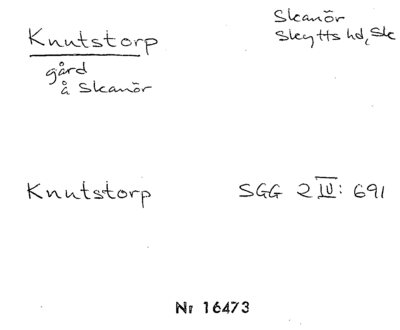 Knutstorp
Skanör
Skytts hd, Sk
gård
å Skanör
Knutstorp
SGG 2 IV: 691
Nr 16473